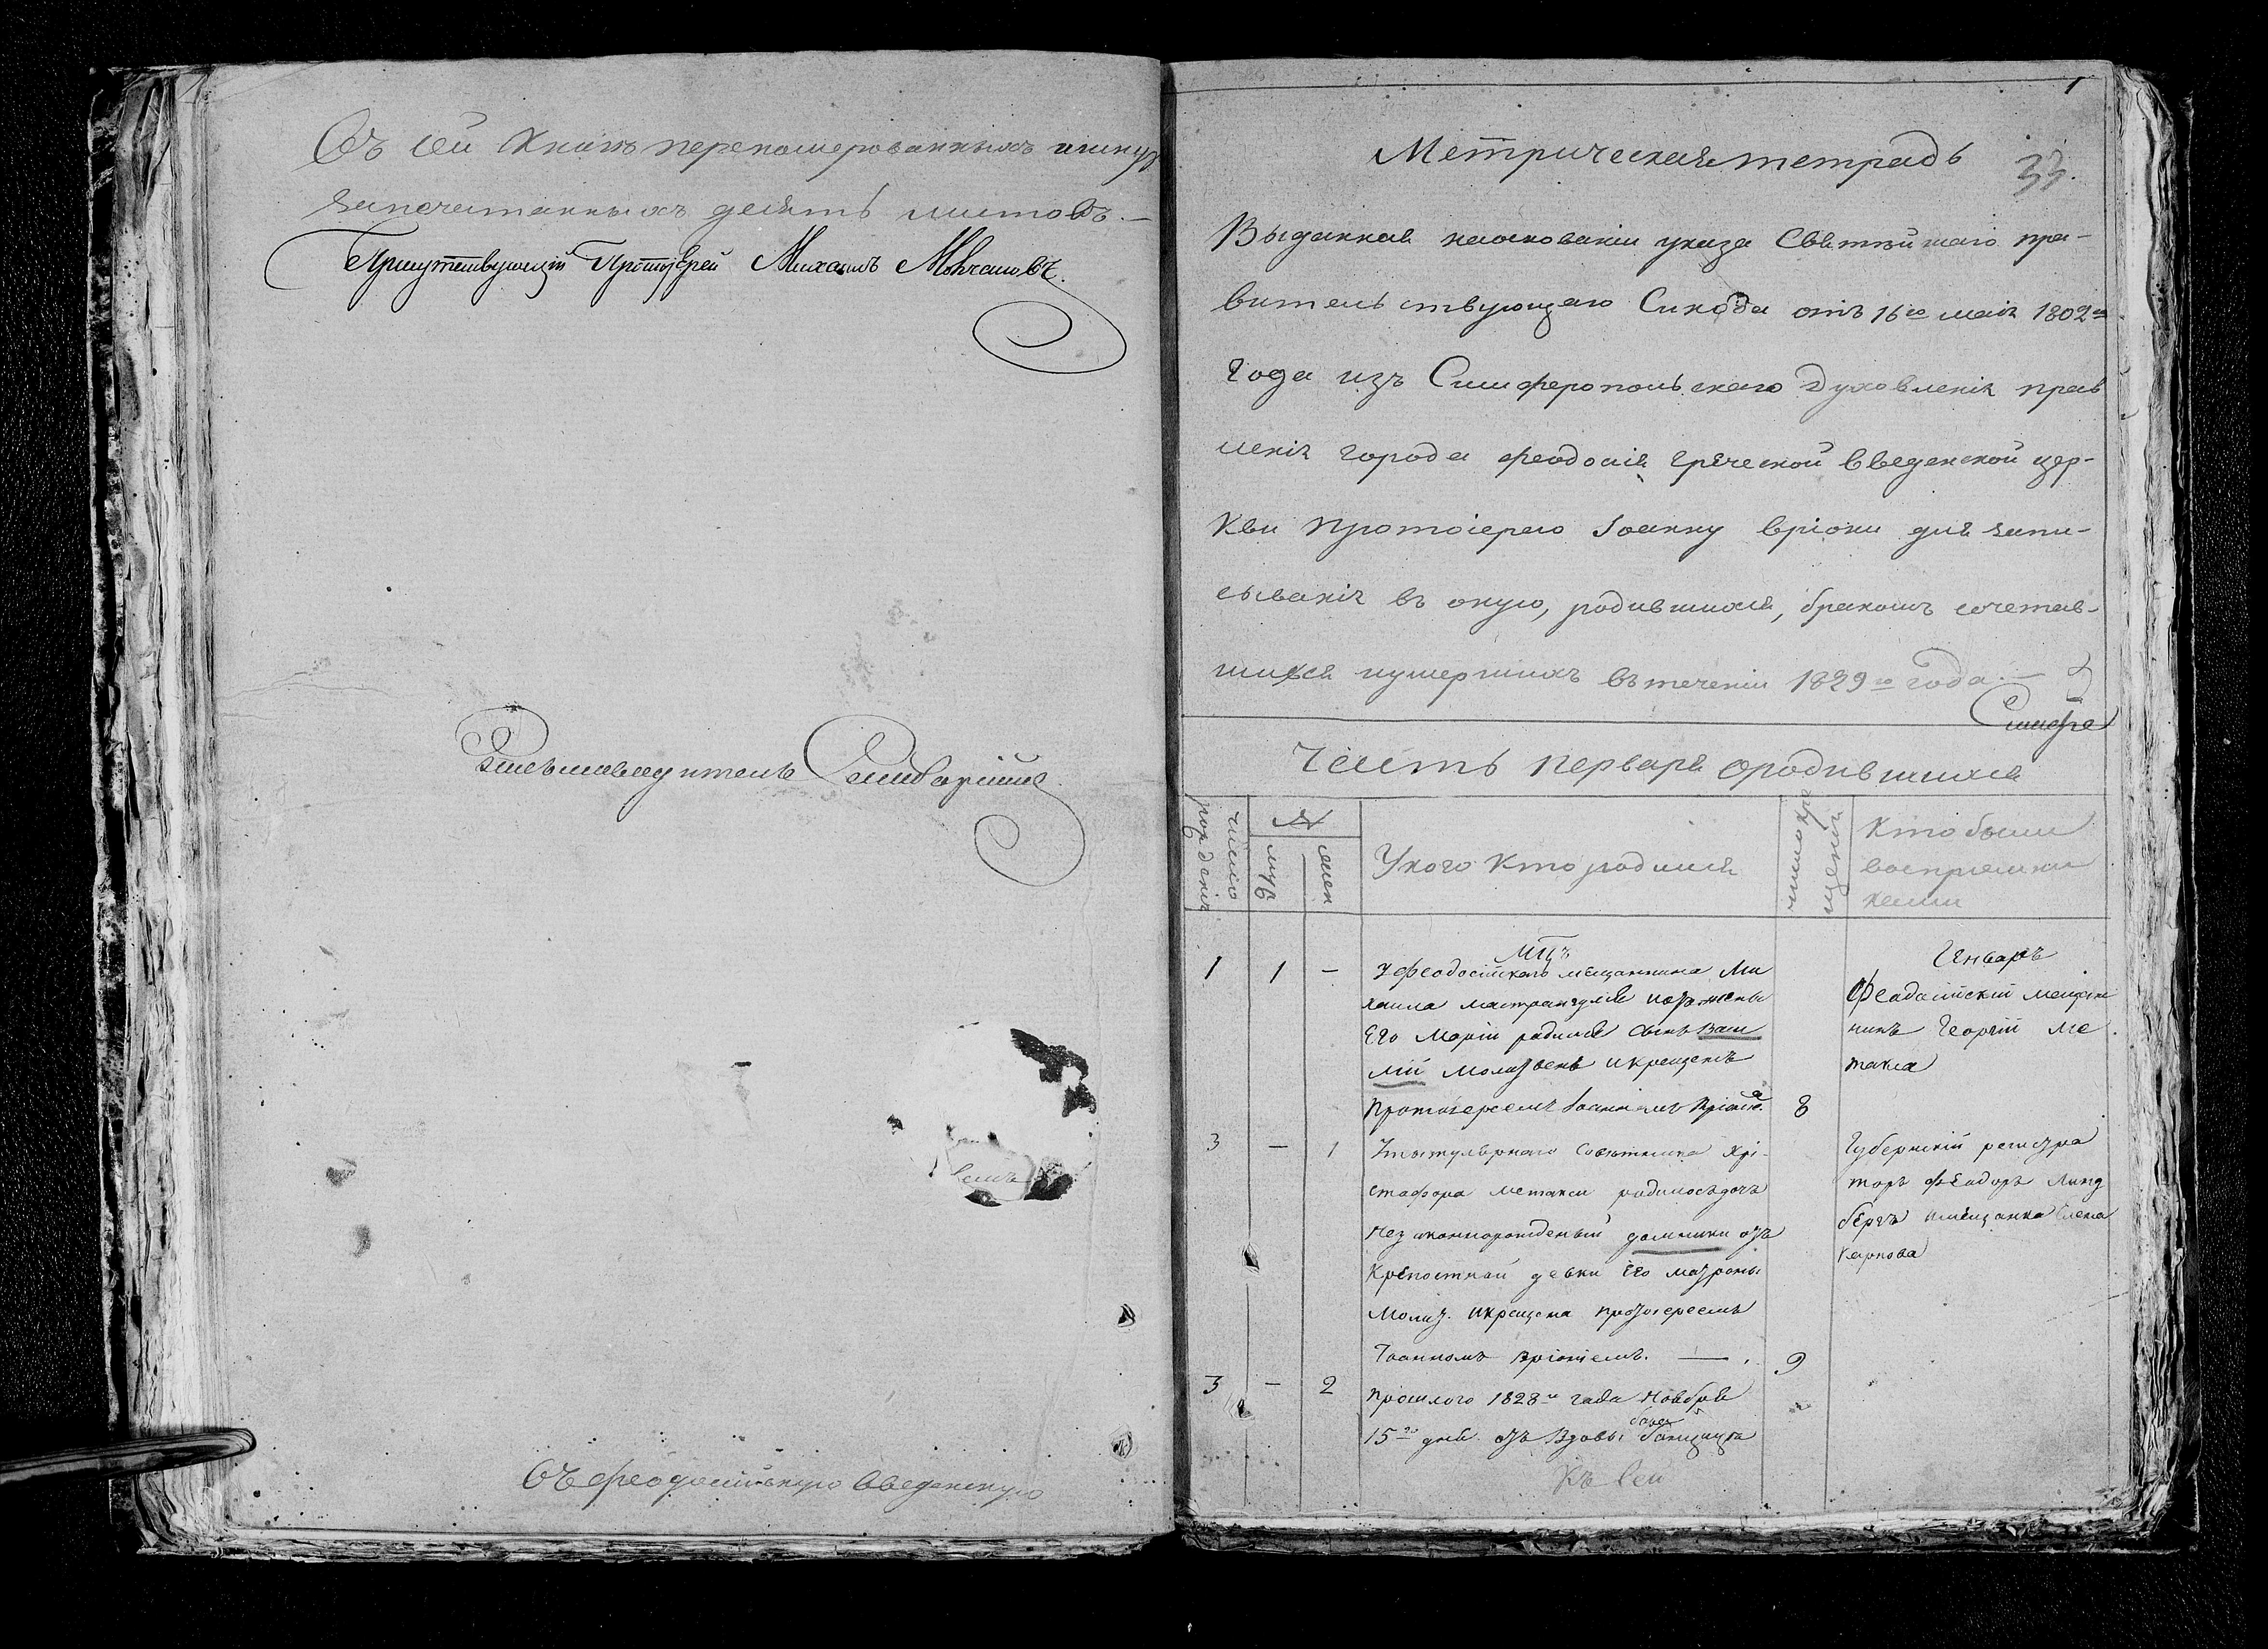 Въ сей Книгѣ перенумерованныхъ ишнуро
запечатанныхъ десять листовъ.—
Присутствующій Протоіерей Михаилъ
Письмоводитель
Въ феодосійскую Введенскую
1
Метрическая тетрадь
33.
Выданная наосновании указа Святѣйшаго пра-
вительствующаго Синода отъ 16го маія 1802го
Года изъ Симферопольскаго Духовленія прав
ленія города феодосія Греческой Введенской цер-
кви протоіерею Іоанну Вріони для запи-
сыванія въ оную, родившихся, бракомъ сочетав-
шихся иумершихъ втеченіи 1829го года.—
Симфе
Часть первая ородившихся
число рожденія
№
муж
жен
Укого Кто родился
число крещенія
Кто были
воспріемни
ками
Мцъ
Генварь
1 1 — У феодосійскаго мещанина Ми
хаила Мастрангуля иотъ жены
Его Маріи родился сынъ Васи
лій Молитвенъ икрещенъ
Протоіереемъ Іоанномъ Вріоніе. 8
Феодосійскій мещан
нинъ Георгій Ме
такса
3 — 1 Утытулярнаго Советника Хри-
стофора Метакси родилосъ дочь
незаконнорожденый домники отъ
Крепостной девки Его матроны
Молит. икрещена протоіереемъ
Іоанномъ Вріоніемъ. — . 9
Губернскій регистра
торъ фЕадоръ Линд
бергъ имещанка Елена
Карпова
3 — 2 прошлого 1828го года Ноября
15го дня. отъ Вдовы
Къ сей